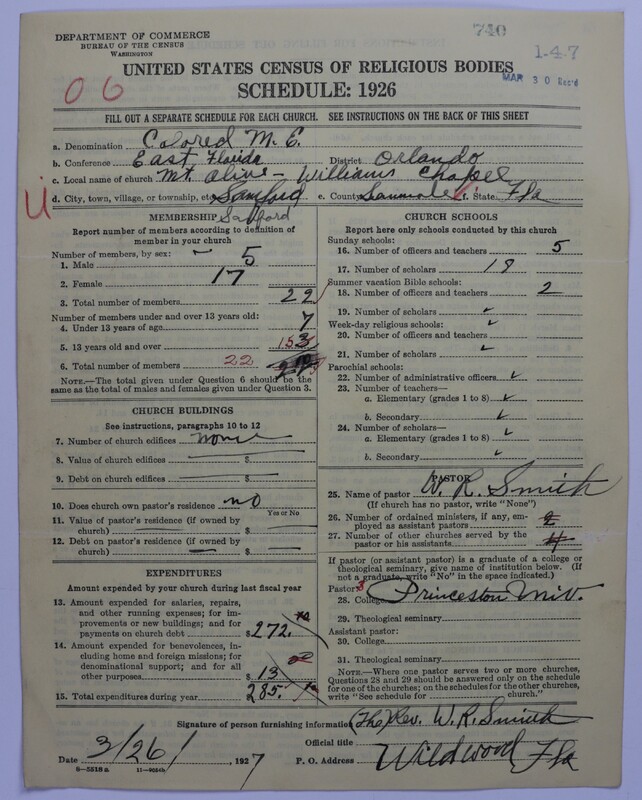 740
DEPARTMENT OF COMMERCE
BUREAU OF THE CENSUS
WASHINGTON
1-4-7
MAR 30 Rec'd
UNITED STATES CENSUS OF RELIGIOUS BODIES
SCHEDULE: 1926
0 6
FILL OUT A SEPARATE SCHEDULE FOR EACH CHURCH. SEE INSTRUCTIONS ON THE BACK OF THIS SHEET
a. Denomination Colored M. E.
b. Conference East Florida District Orlando
c. Local name of church Mt. Olive - Williams Chapel
U
d. City, town, village, or township, etc. Sanford e. County f. State Fla
Sanford
MEMBERSHIP
Report number of members according to definition of member in your church
Number of members, by sex:
1. Male 5
2. Female 17
3. Total number of members 22
Number of members under and over 13 years old:
4. Under 13 years of age 7
5. 13 years old and over 15
6. Total number of members 22
NOTE.—The total given under Question 6 should be the
same as the total of males and females given under Question 3.
CHURCH BUILDINGS
See instructions, paragraphs 10 to 12
7. Number of church edifices none
8. Value of church edifices $
9. Debt on church edifices $
10. Does church own pastor's residence no
Yes or No
11. Value of pastor's residence (if owned by
church) $
12. Debt on pastor's residence (if owned by
church) $
EXPENDITURES
Amount expended by your church during last fiscal year
13. Amount expended for salaries, repairs,
and other running expenses; for im-
provements or new buildings; and for
payments on church debt $272.
14. Amount expended for benevolences, in-
cluding home and foreign missions; for
denominational support; and for all
other purposes $ 13
15. Total expenditures during year $ 285.
CHURCH SCHOOLS
Report here only schools conducted by this church
Sunday schools:
16. Number of officers and teachers 5
17. Number of scholars 18
Summer vacation Bible schools:
18. Number of officers and teachers 2
19. Number of scholars
Week-day religious schools:
20. Number of officers and teachers
21. Number of scholars
Parochial schools:
22. Number of administrative officers
23. Number of teachers—
a. Elementary (grades 1 to 8)
b. Secondary
24. Number of scholars—
a. Elementary (grades 1 to 8)
b. Secondary
PASTOR
25. Name of pastor W. R. Smith
(If church has no pastor, write "None")
26. Number of ordained ministers, if any, em-
ployed as assistant pastors 2
27. Number of other churches served by the
pastor or his assistants 4
If pastor (or assistant pastor) is a graduate of a college or
theological seminary, give name of institution below. (If
not a graduate, write "No" in the space indicated.)
Pastor: 3
28. College Princeston Univ.
29. Theological seminary
Assistant pastor:
30. College
31. Theological seminary
NOTE.—Where one pastor serves two or more churches,
Questions 28 and 29 should be answered only on the schedule
for one of the churches; on the schedules for the other churches,
write "See schedule for church."
Signature of person furnishing information (The) Rev. W. R. Smith
Official title
Date 3/26/, 1927 P. O. Address Wildwood Fla
8—5518 a